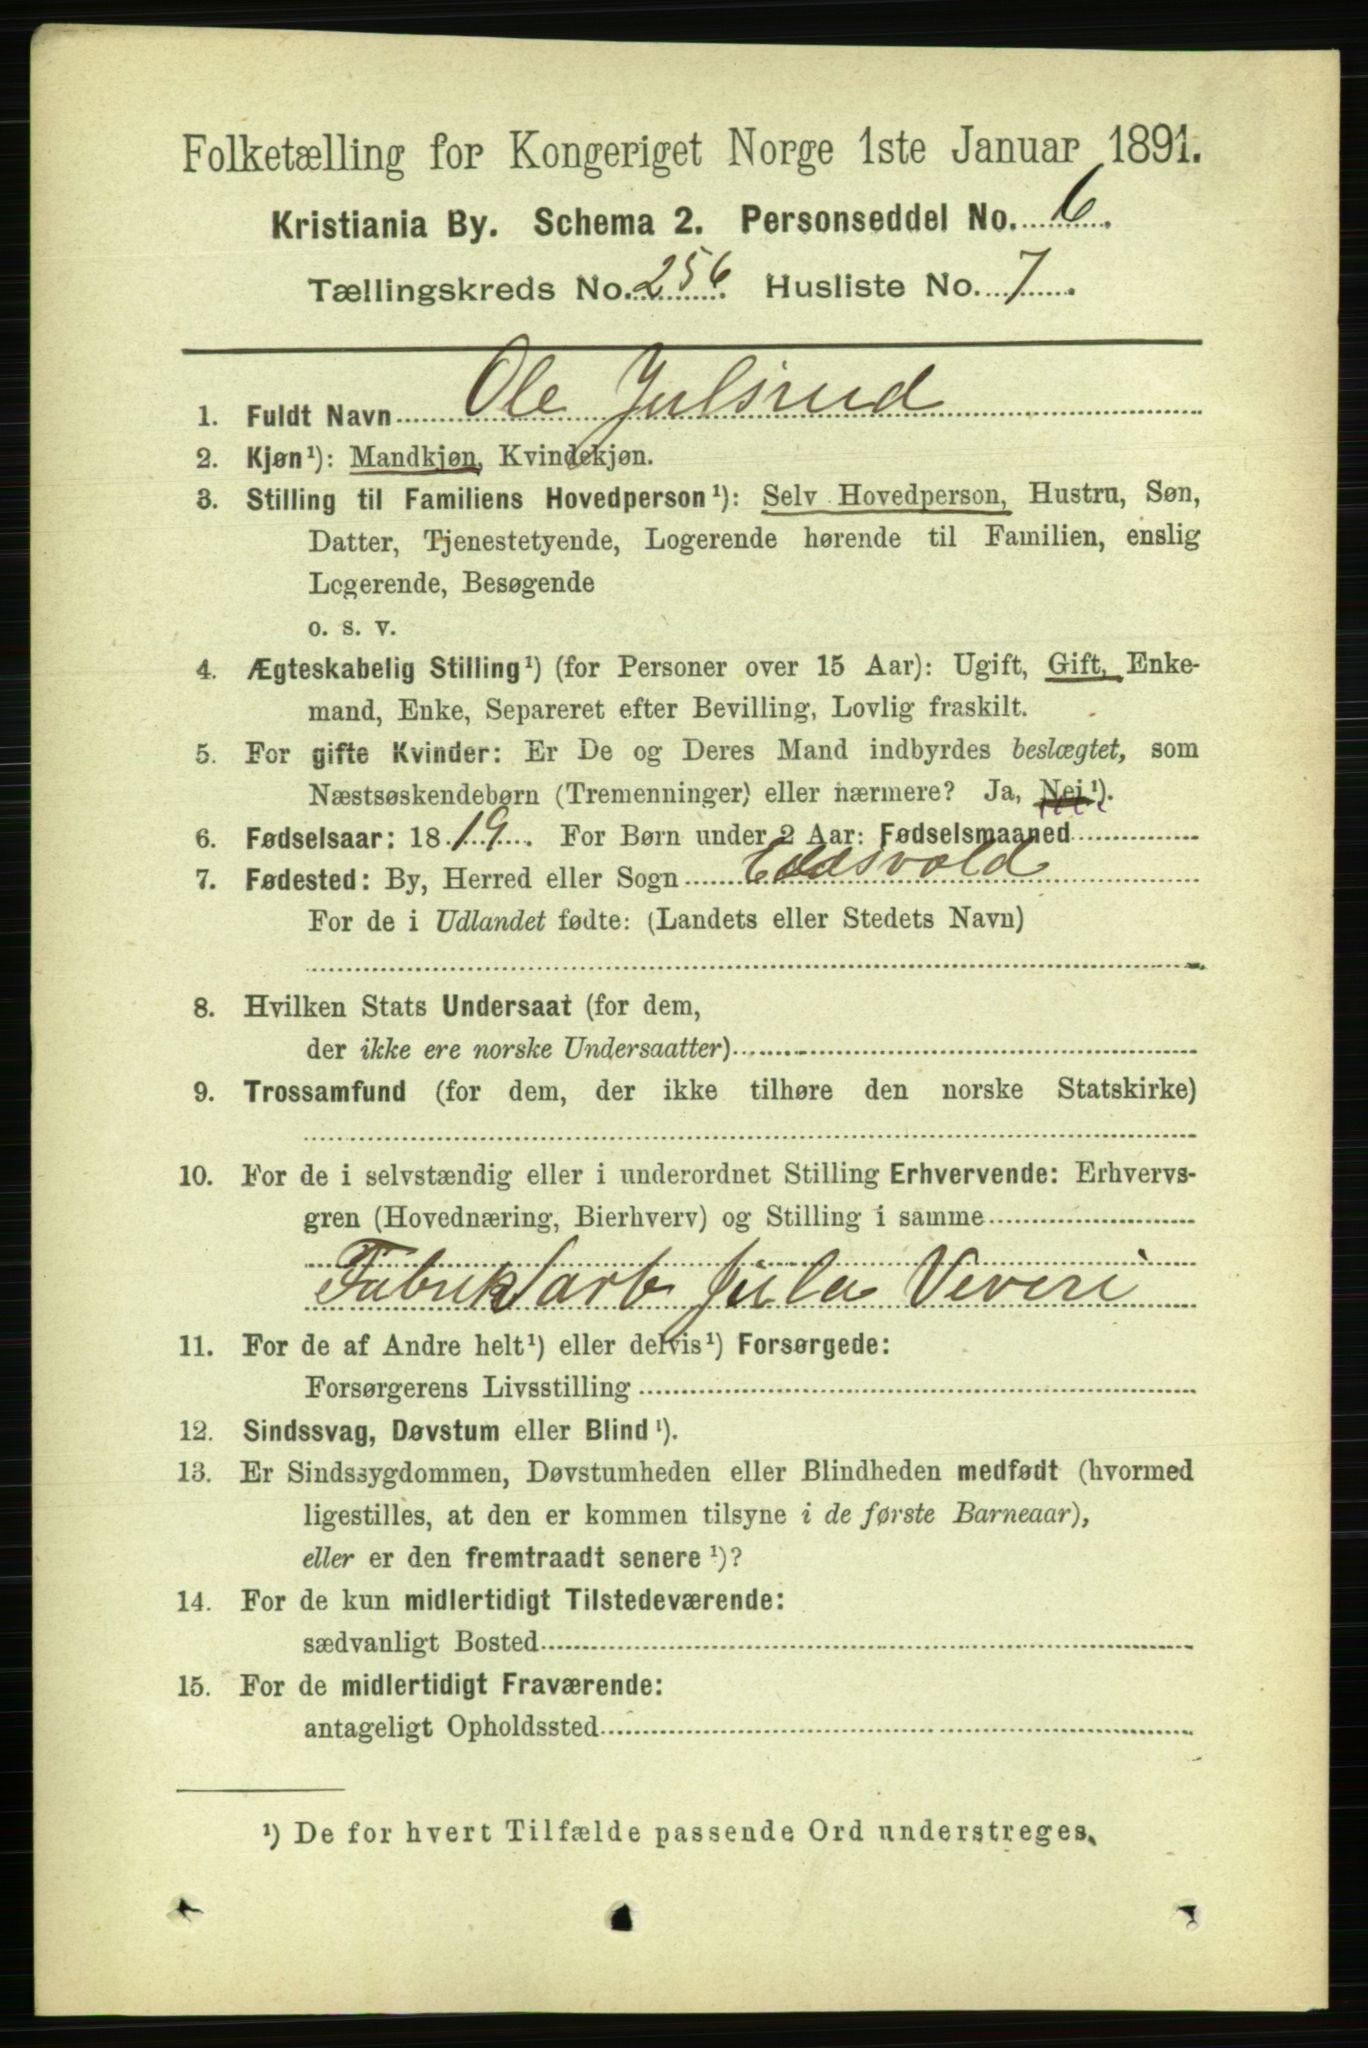 Folketælling for Kongeriget Norge 1ste Januar 1891.
Kristiania By. Schema 2. Personseddel No. 6.
Tællingskreds No. 256. Husliste No. 7.
1. Fuldt Navn Ole Julsrud
2. Kjøn¹): Mandkjøn, Kvindekjøn.
3. Stilling til Familiens Hovedperson¹): Selv Hovedperson, Hustru, Søn,
Datter, Tjenestetyende, Logerende hørende til Familien, enslig
Logerende, Besøgende
o. s. v.
4. Ægteskabelig Stilling¹) (for Personer over 15 Aar): Ugift, Gift, Enke-
mand, Enke, Separeret efter Bevilling, Lovlig fraskilt.
5. For gifte Kvinder: Er De og Deres Mand indbyrdes beslægtet, som
Næstsøskendebørn (Tremenninger) eller nærmere? Ja, Nei ¹).
6. Fødselsaar: 1819. For Børn under 2 Aar: Fødselsmaaned
7. Fødested: By, Herred eller Sogn Eidsvold
For de i Udlandet fødte: (Landets eller Stedets Navn)
8. Hvilken Stats Undersaat (for dem,
der ikke ere norske Undersaatter)
9. Trossamfund (for dem, der ikke tilhøre den norske Statskirke)
10. For de i selvstændig eller i underordnet Stilling Erhvervende: Erhvervs-
gren (Hovednæring, Bierhverv) og Stilling i samme
Fabriksarb Jula Veveri
11. For de af Andre helt¹) eller delvis¹) Forsørgede:
Forsørgerens Livsstilling
12. Sindssvag, Døvstum eller Blind¹).
13. Er Sindssygdommen, Døvstumheden eller Blindheden medfødt (hvormed
ligestilles, at den er kommen tilsyne i de første Barneaar),
eller er den fremtraadt senere ¹)?
14. For de kun midlertidigt Tilstedeværende:
sædvanligt Bosted
15. For de midlertidigt Fraværende:
antageligt Opholdssted
¹) De for hvert Tilfælde passende Ord understreges.